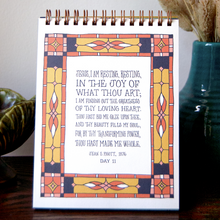 JESUS, I AM RESTING, RESTING,
IN THE JOY OF
WHAT THOU ART;
I AM FINDING OUT THE GREATNESS
OF THY LOVING HEART.
THOU HAST BID ME GAZE UPON THEE,
AND THY BEAUTY FILLS MY SOUL,
FOR BY THY TRANSFORMING POWER,
THOU HAST MADE ME WHOLE.
JEAN S. PIGOTT, 1876
DAY 21